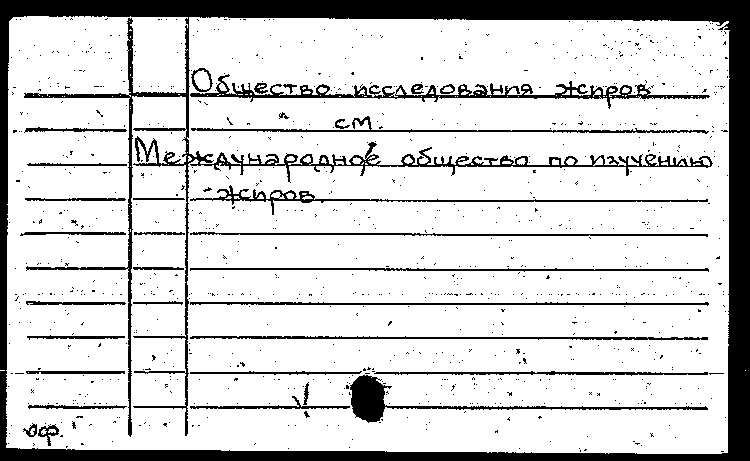 Общество исследования жиров
см.
Международное общество по изучению
жиров.